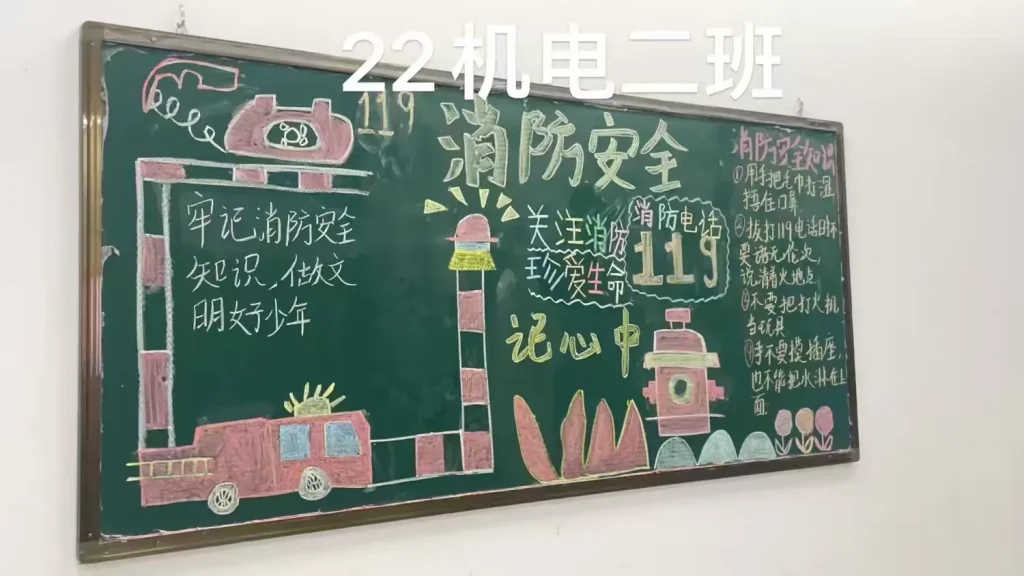 22机电二班
119
消防安全
牢记消防安全
知识,做文
明好少年
关注消防
珍爱生命
消防电话
119
记心中
消防安全知识
①用手把毛巾打湿
捂住口鼻
②拔打119电话时不
要
说清着火地点
③不要把打火机
当玩具
④手不要摸插座,
也不能把水淋在上
面